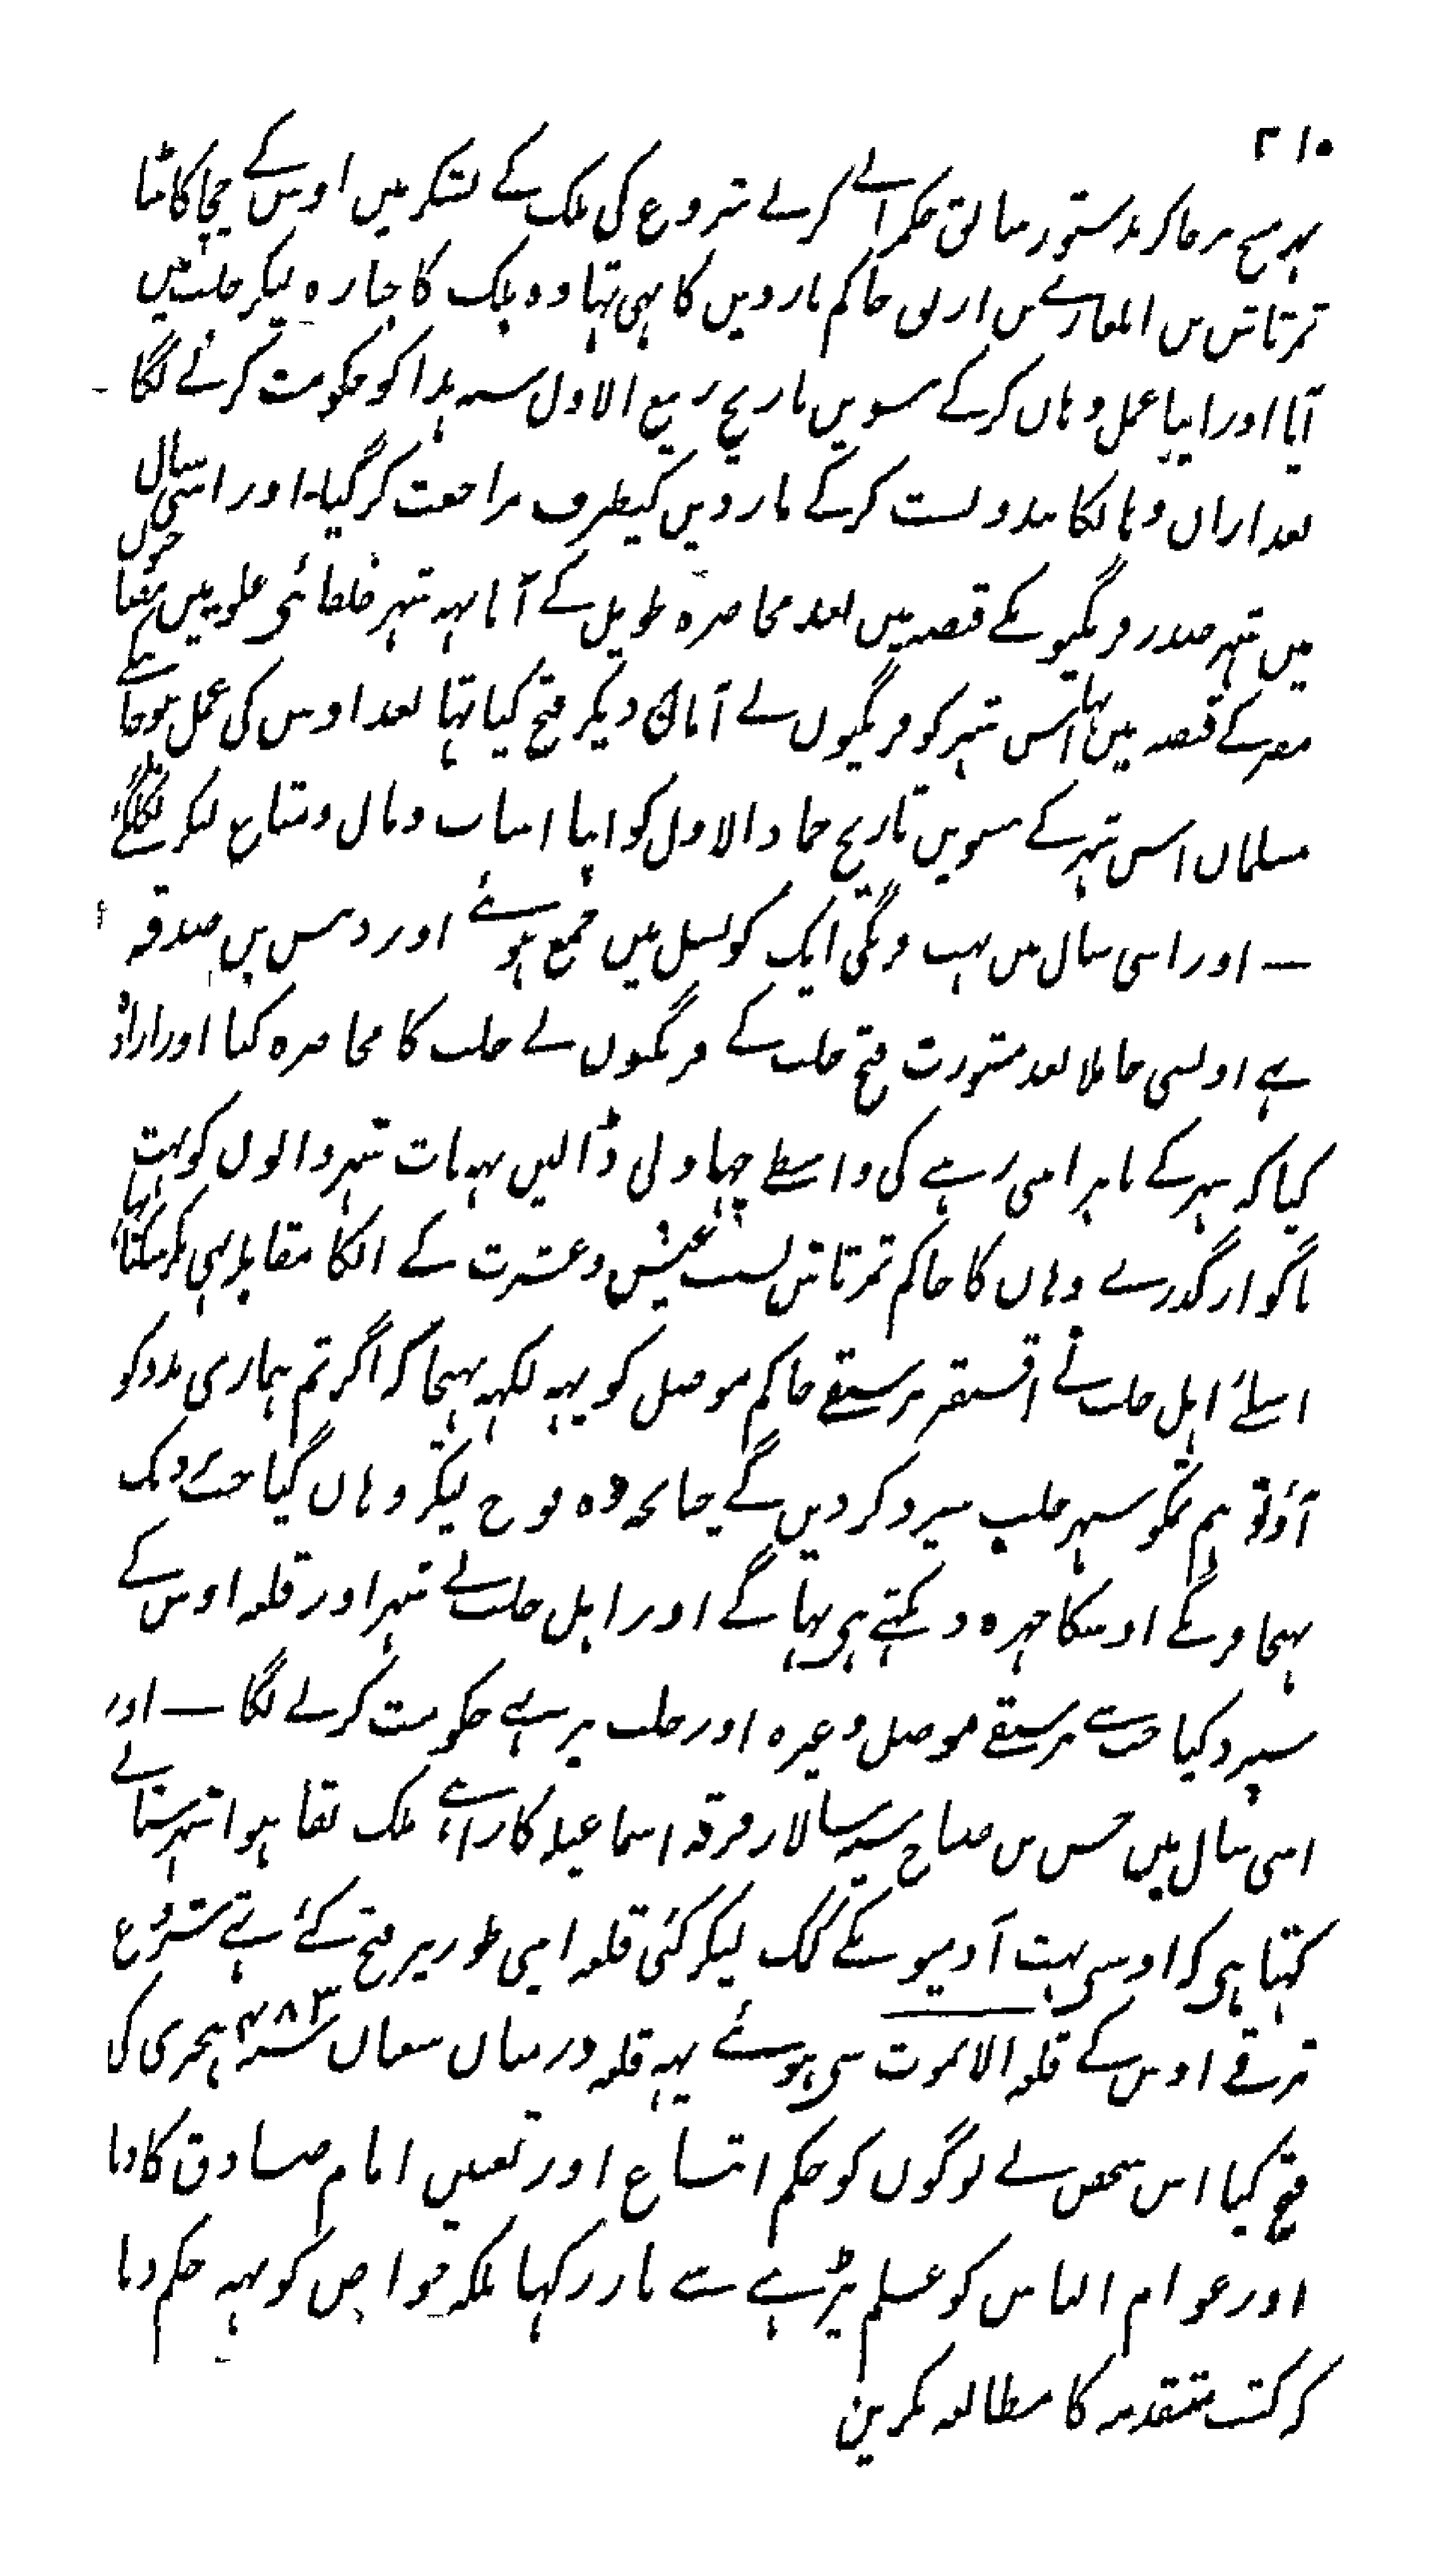 ۲۱۰
پہر مبیح پر جاکر بدستور سابق حکمرانی کرنے شروع کی ملک کے لشکر میں اوس کے چچا کا بیٹا
تمرتاش بن ارتق حاکم ماردین کا بہی تہا وہ بلک کا جنازہ لیکر حلب میں
آیا اور اپنا عمل وہاں کرکے بیسویں تاریخ ربیع الاول سنہ ہذا کو حکومت کرنے لگا
بعد ازاں وہانکا بندوبست کرکے ماردین کیطرف مراجعت کرگیا۔ اور اسی سال
میں شہر صور فرنگیو نکے قبضہ میں بعد محاصرہ طویل کے آیا یہہ شہر خلفائی علویہ میں تہا جوکہ
مصر کے قبضہ میں تہا اس شہر کو فرنگیوں نے اماں دیکر فتح کیا تہا بعد اوس کی عمل ہوجانے کے
مسلماں اس شہر کے بیسویں تاریخ جماد الاول کو اپنا اسباب و مال و متاع لیکر نکل گئے
— اور اسی سال میں سب فرنگی ایک کونسل میں جمع ہوئے اور دبیس بن صدقہ
بعد مشورت فتح حلب کے فرنگیوں نے حلب کا محاصرہ کیا اور ارادہ
کیا کہ شہر کے باہر اپنی رہنے کی واسطے چہاونی ڈالیں یہہ بات شہر والوں کو بہت
ناگوار گذرے وہاں کا حاکم تمرتاش بسبب عیش و عشرت کے انکا مقابلہ نہیں کرسکتا تہا
اسلئے اہل حلب نے اقسنقر برسقے حاکم موصل کو یہہ لکہہ بہیجا کہ اگر تم ہماری مدد کو
آؤ تو ہم تمکو شہر حلب سپرد کردیں گے چنانچہ وہ فوج لیکر وہاں گیا جب نزدیک
پہنچا فرنگے اوسکا چہرہ دیکہتے ہی بہاگے اور اہل حلب نے شہر اور قلعہ اوس کے
سپرد کیا جب سے برسقے موصل وغیرہ اور حلب پر بہی حکومت کرنے لگا — اور
اسی سال میں حسن بن صباح سپہ سالار فرقہ اسماعیلیہ کا راہی ملک بقا ہوا شہرستانی نے
کہتا ہی کہ اوسی بہت آدمیو نکے کمک لیکر کئی قلعہ اسی طور پر فتح کئے تہے شروع
ترقے اوس کے قلعہ الاموت سی ہوئے یہہ قلعہ درمیاں شعباں سنہ ۴۸۳ ہجری کی
فتح کیا اس شخص نے لوگوں کو حکم اتباع اور تعیین امام صادق کا دیا
اور عوام الناس کو علم پڑہنے سے باز رکہا بلکہ خواص کو یہہ حکم دیا
کہ کتب متقدمہ کا مطالعہ نکرین